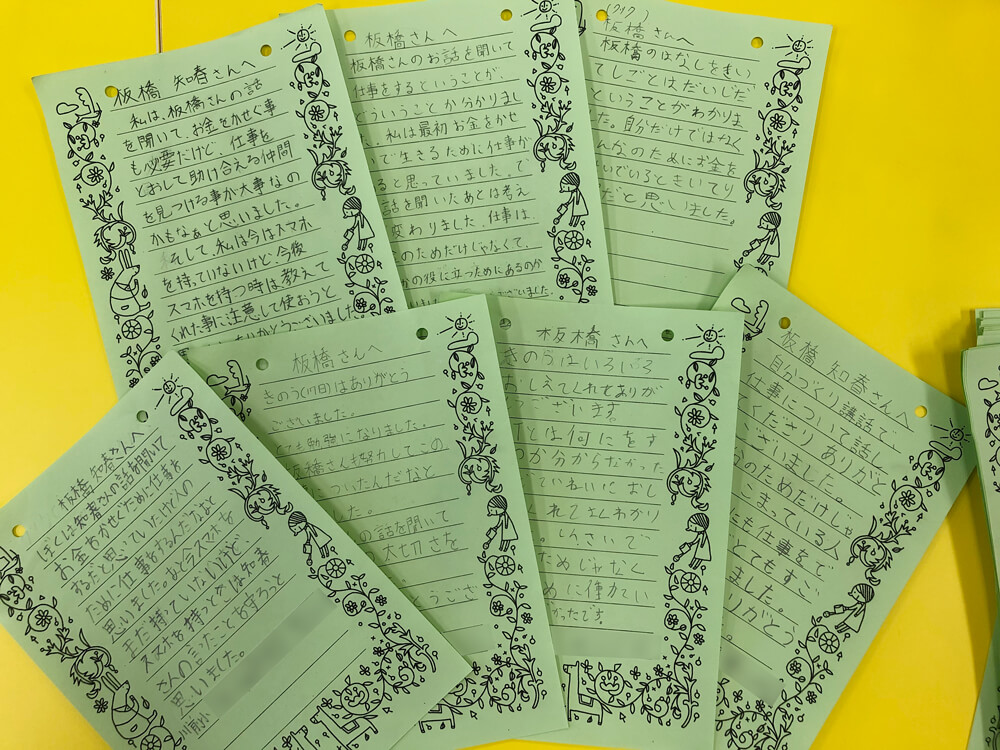 板橋 知春さんへ
私は、板橋さんの話
を聞いて、お金をかせぐ事
も必要だけど、仕事を
とおして助け合える仲間
を見つける事が大事なの
かもなぁと思いました。
そして、私は今はスマホ
を持っていないけど、今後
スマホを持つ時は教えて
くれた事に注意して使おうと
ありがとうございました
板橋さんへ
板橋さんのお話を聞いて
仕事をするということが、
どういうことか分かりまし
私は最初お金をかせ
いで生きるために仕事が
ると思っていました。で
話を聞いたあとは考え
変わりました。仕事は、
のためだけじゃなくて、
かの役に立つためにあるのか
板橋さんへ
板橋のはなしをきい
てしごとはだいじだ
ということがわかりま
た。自分だけではなく
んなのためにお金を
いでいるときいてり
だと思いました。
板橋 知春さんへ
ぼくは知春さんの話を聞いて
お金をかせぐために仕事を
するだと思っていたけど人の
ために仕事をするんだなと
思いました。あと今スマホを
まだ持っていないけど、
スマホを持つときは知春
さんの言ったことを守ろうと
思いました。
板橋さんへ
きのう(17日)はありがとう
ございました。
ても勉強になりました
板橋さんも努力してこの
についたんだなと
した。
の話を聞いて
大切さを
うござ
板橋さんへ
きのうはいろいろ
おしえてくれてありが
うございます。
とは何にをす
のか分からなかった
ていねいにおし
くれて
ためじゃなく
めに働いてい
かったです。
板橋 知春さんへ
自分づくり講話で
仕事について話し
くださりありがと
ございました。
のためだけじゃ
こまっている人
にも仕事をで
とてもすご
ました。
りがとう